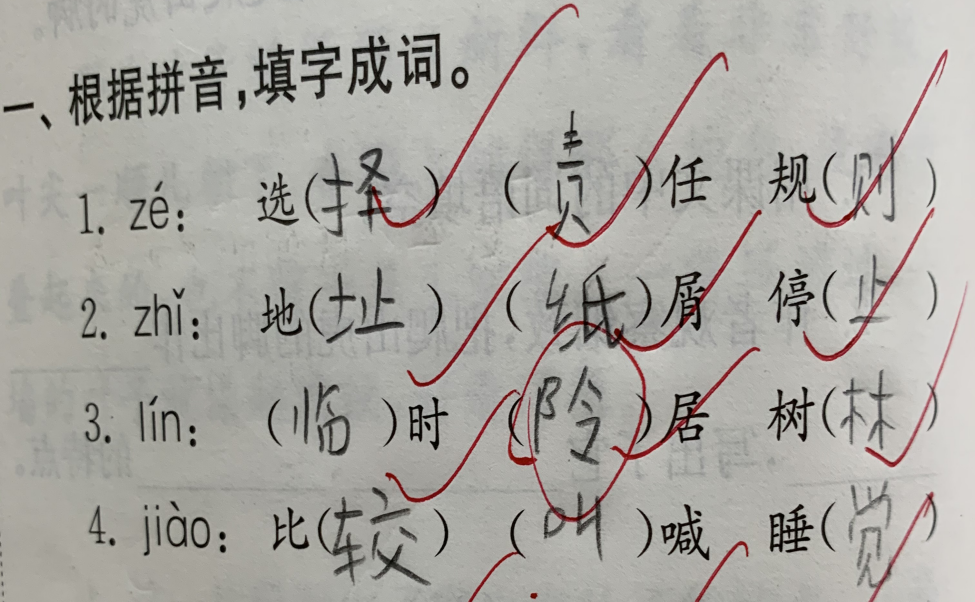 一、根据拼音,填字成词。
1. zé: 选(择) (责)任 规(则)
2. zhǐ: 地(址) (纸)屑 停(止)
3. lín: (临)时 (阾)居 树(林)
4. jiào: 比(较) (叫)喊 睡(觉)